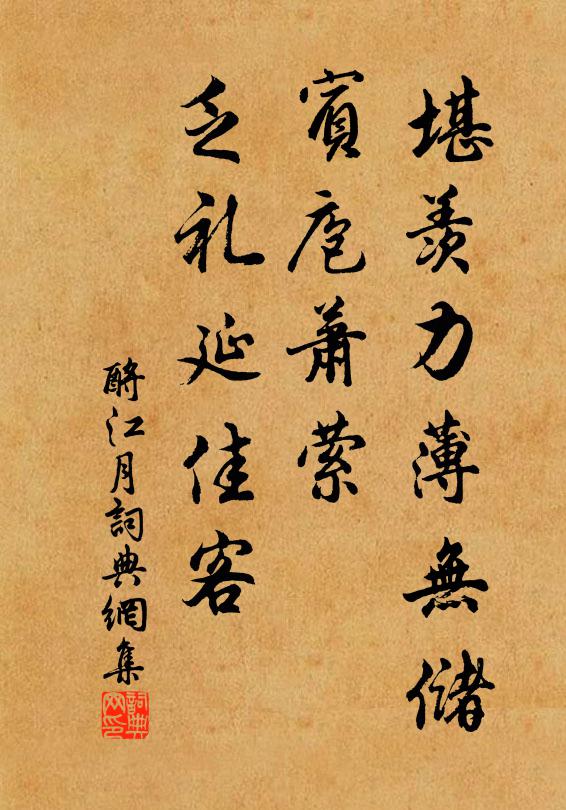 堪羨力薄無儲
賓庖蕭縈
乏礼延佳客
酹江月詞典網集
詞典网印